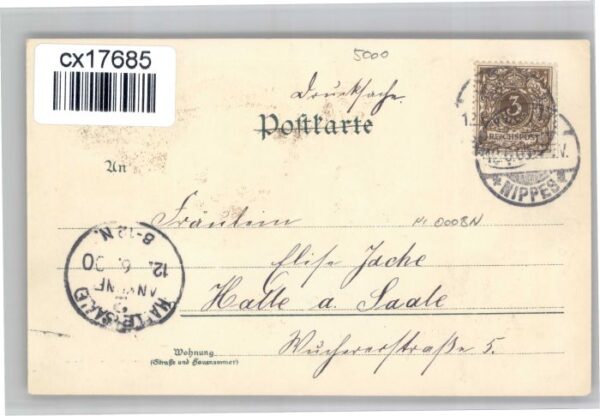 cx17685
5000
Drucksache.
Postkarte
3
REICHSPOST
* NIPPES *
An
Fräulein
Elise Jache
Halle a. Saale
Wuchererstraße 5.
Wohnung
(Straße und Hausnummer)
8-12 N.
12. 6. 00
HALLE (SAALE)